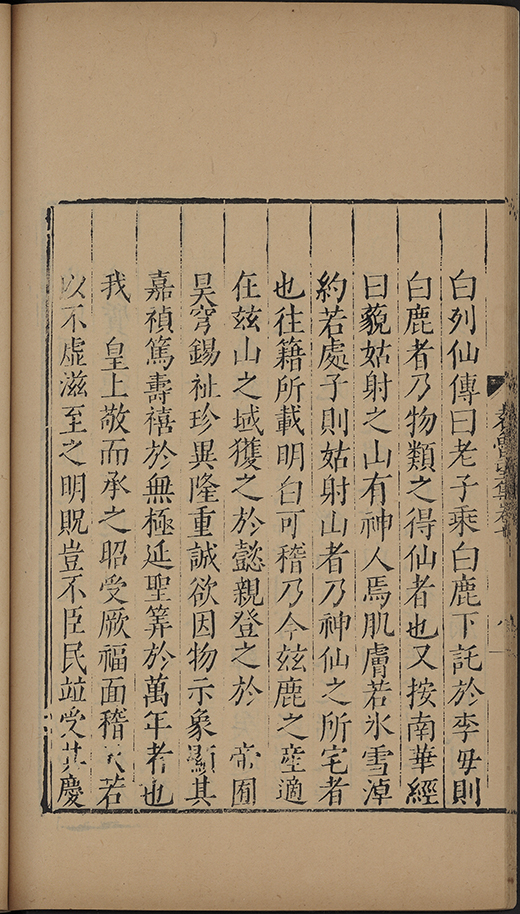 白列仙傳曰老子乘白鹿下託於李母則
白鹿者乃物類之得仙者也又按南華經
曰藐姑射之山有神人焉肌膚若氷雪淖
約若處子則姑射山者乃神仙之所宅者
也往籍所載明白可稽乃今玆鹿之産適
在玆山之域獲之於懿親登之於　帝囿
昊穹錫祉珍異隆重誠欲因物示象顯其
嘉禎篤壽禧於無極延聖筭於萬年者也
我　皇上敬而承之昭受厥福面稽天若
以不虛滋至之明貺豈不臣民竝受其慶